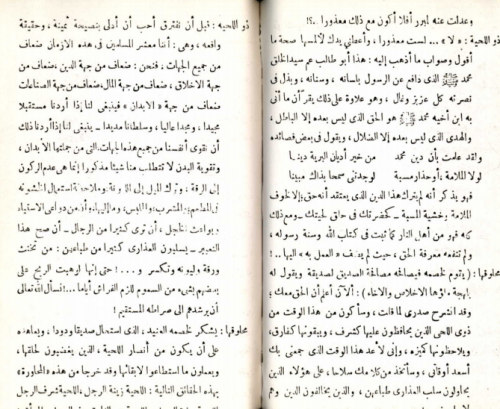 وعدلت عنه لمبرر أفلا أكون مع ذلك معذورا ..؟!
ذو اللحية : « لا » ... لست معذورا ، وأعطني يدك لألمسها صحة ما
أقول وصواب ما أذهب إليه : هذا أبو طالب عم سيد الخلق
محمد ﷺ الذى دافع عن الرسول بلسانه ، وسنانه ، وبذل فى
نصرته كل عزيز وغال ، وهو علاوة على ذلك يقر أن ما أتى
به ابن أخيه محمد ﷺ هو الحق الذى ليس بعده إلا الباطل ،
والهدى الذى ليس بعده إلا الضلال ، ويقول فى بعض قصائده
ولقد علمت بأن دين محمد من خير أديان البرية دينا
لولا الملامة أو حذار مسبة لوجدتنى سمحا بذاك مبينا
فهو يذكر أنه لم يترك هذا الدين الذى يعتقد أنه حق إلا لخوف
الملامة وخشية المسبة - كحضرتك فى حلق لحيتك - ومع ذلك
كله فهو من أهل النار كما ثبت فى كتاب الله وسنة رسوله ،
ولم تنفعه معرفة الحق ، حيث لم العمل به ..!
محلوقها : ( يتوم لخصمه فيصالحه مصالحة الصديق لصديقة ويقول له
بلهجة ملؤها الاخلاص والاخاء ) : ألآن أعلم أن الحق معك ؛
وقد انشرح صدرى لما قلت ، وسأكون من هذا الوقت من
ذوى اللحى الذين يحافظون عليها كشرف ، ويبقونها كفارق ،
ويلاحظونها كميزة ، وإنى لأعد هذا الوقت الذى جمعنى بك
أسعد أوقاتى ، وسأتخذ من كلامك سلاحا ، على هؤلاء الذين
يحاولون سلب العذارى طباعهن ، والذين يخالفون الدين وهم
ذو اللحية : قبل أن نفترق أحب أن أدلى بنصيحة ثمينة ، وحقيقة
واقعه ، وهى : أننا معشر المسلمين فى هذه الازمان ضعاف
من جميع الجهات ، فنحن : ضعاف من جهة الدين ، ضعاف من
جهة الاخلاق ، ضعاف من جهة المال ، ضعاف من جهة الصناعات
ضعاف من جهة « الابدان » فينبغى لنا إذا أردنا مستقبلا
مجيدا ، ومجدا عاليا ، وسلطانا مديدا - ينبغى لنا إذا أردنا ذلك
أن نقوى أنفسنا من جميع هذه الجهات التى من جملتها الأبدان ،
وتقوية البدن لا تتطلب منا شيئا مذكورا إنما هى عدم الركون
إلى الرقة ، وترك الميل إلى وملاحظة استعمال الخشونة
فى المطعم والمشرب والملبس ، وما إليها من دواعى الاستياء
وبواعث الخجل ، أن ترى كثيرا من الرجال - إن صح هذا
التعبير - يسلبون العذارى كثيرا من طباعهن : من تخنث
ورقة وليونة وتكسر و ....! حتى إنها لو هبت الريح على
بعضهم بشىء من السموم للزم الفراش أياما ... فنسأل الله تعالى
أن يرشدهم الى صراطه المستقيم !
محلوقها : يشكر لخصمه العنيد ، الذى استحال صديقا ودودا ، ويعاهده
على أن يكون من أنصار اللحية ، الذين يغضبون لحلقها ،
ويعملون ما استطاعوا لابقائها وقد خرجا من هذه « المحاورة »
بهذه الحقائق التالية : اللحية زينة الرجل ، اللحية شرف الرجل